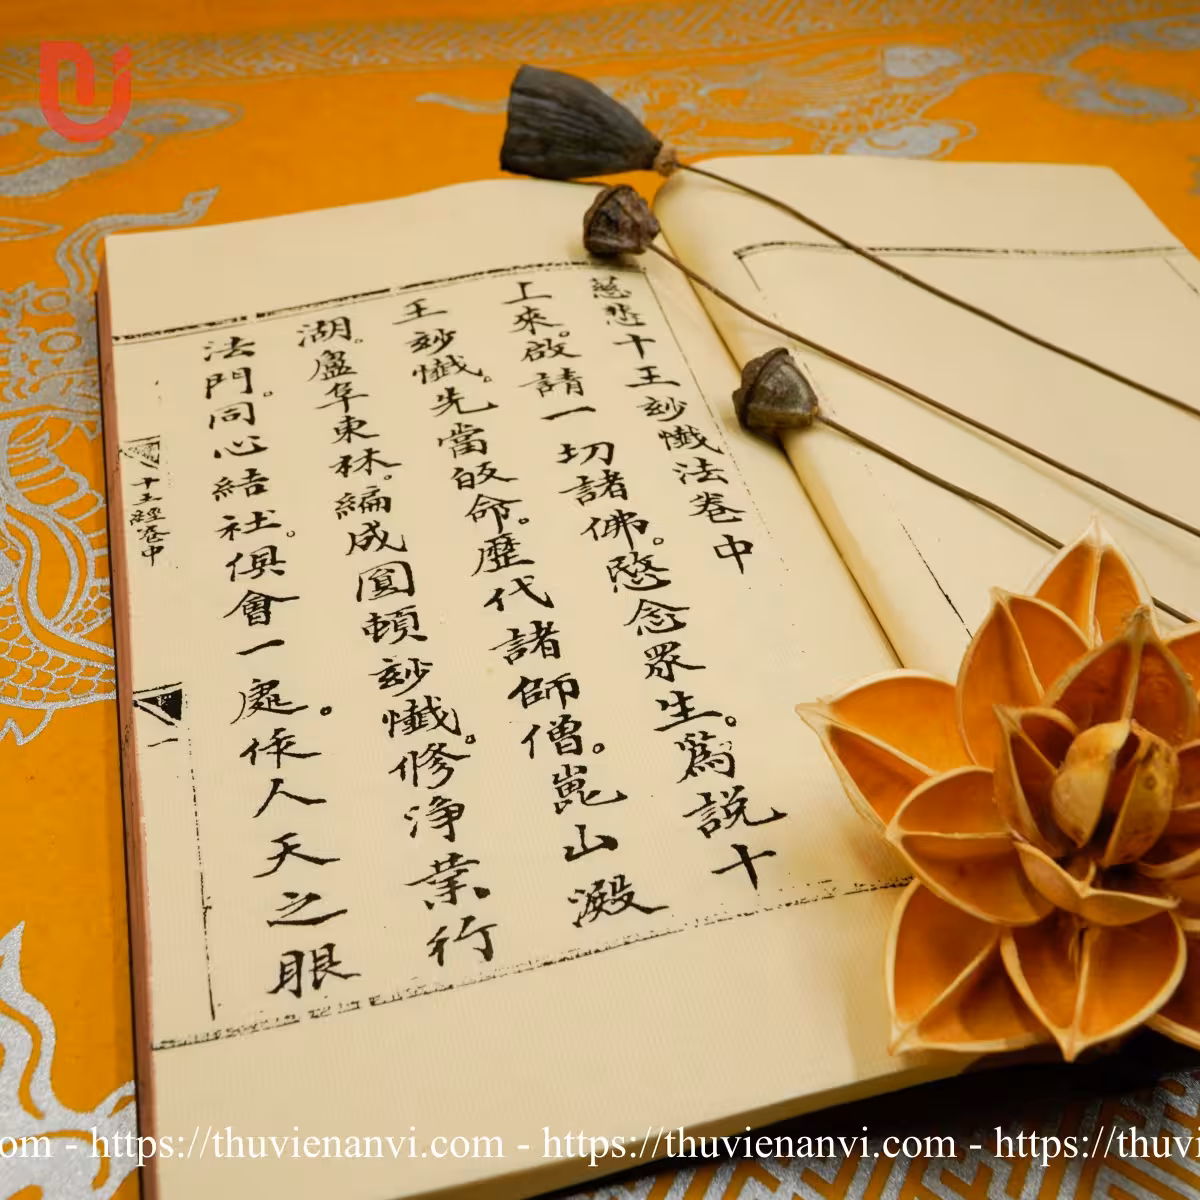 慈悲十王玅懺法卷中
上來。啟請一切諸佛。愍念眾生。爲說十
王玅懺。先當皈命。歷代諸師僧。崑山澱
湖。盧阜東林。編成圓頓玅懺。修淨業行
法門。同心結社。俱會一處。作人天之眼
十王經卷中
一
https://thuvienanvi.com - https://thuvienanvi.com - https://thuvi